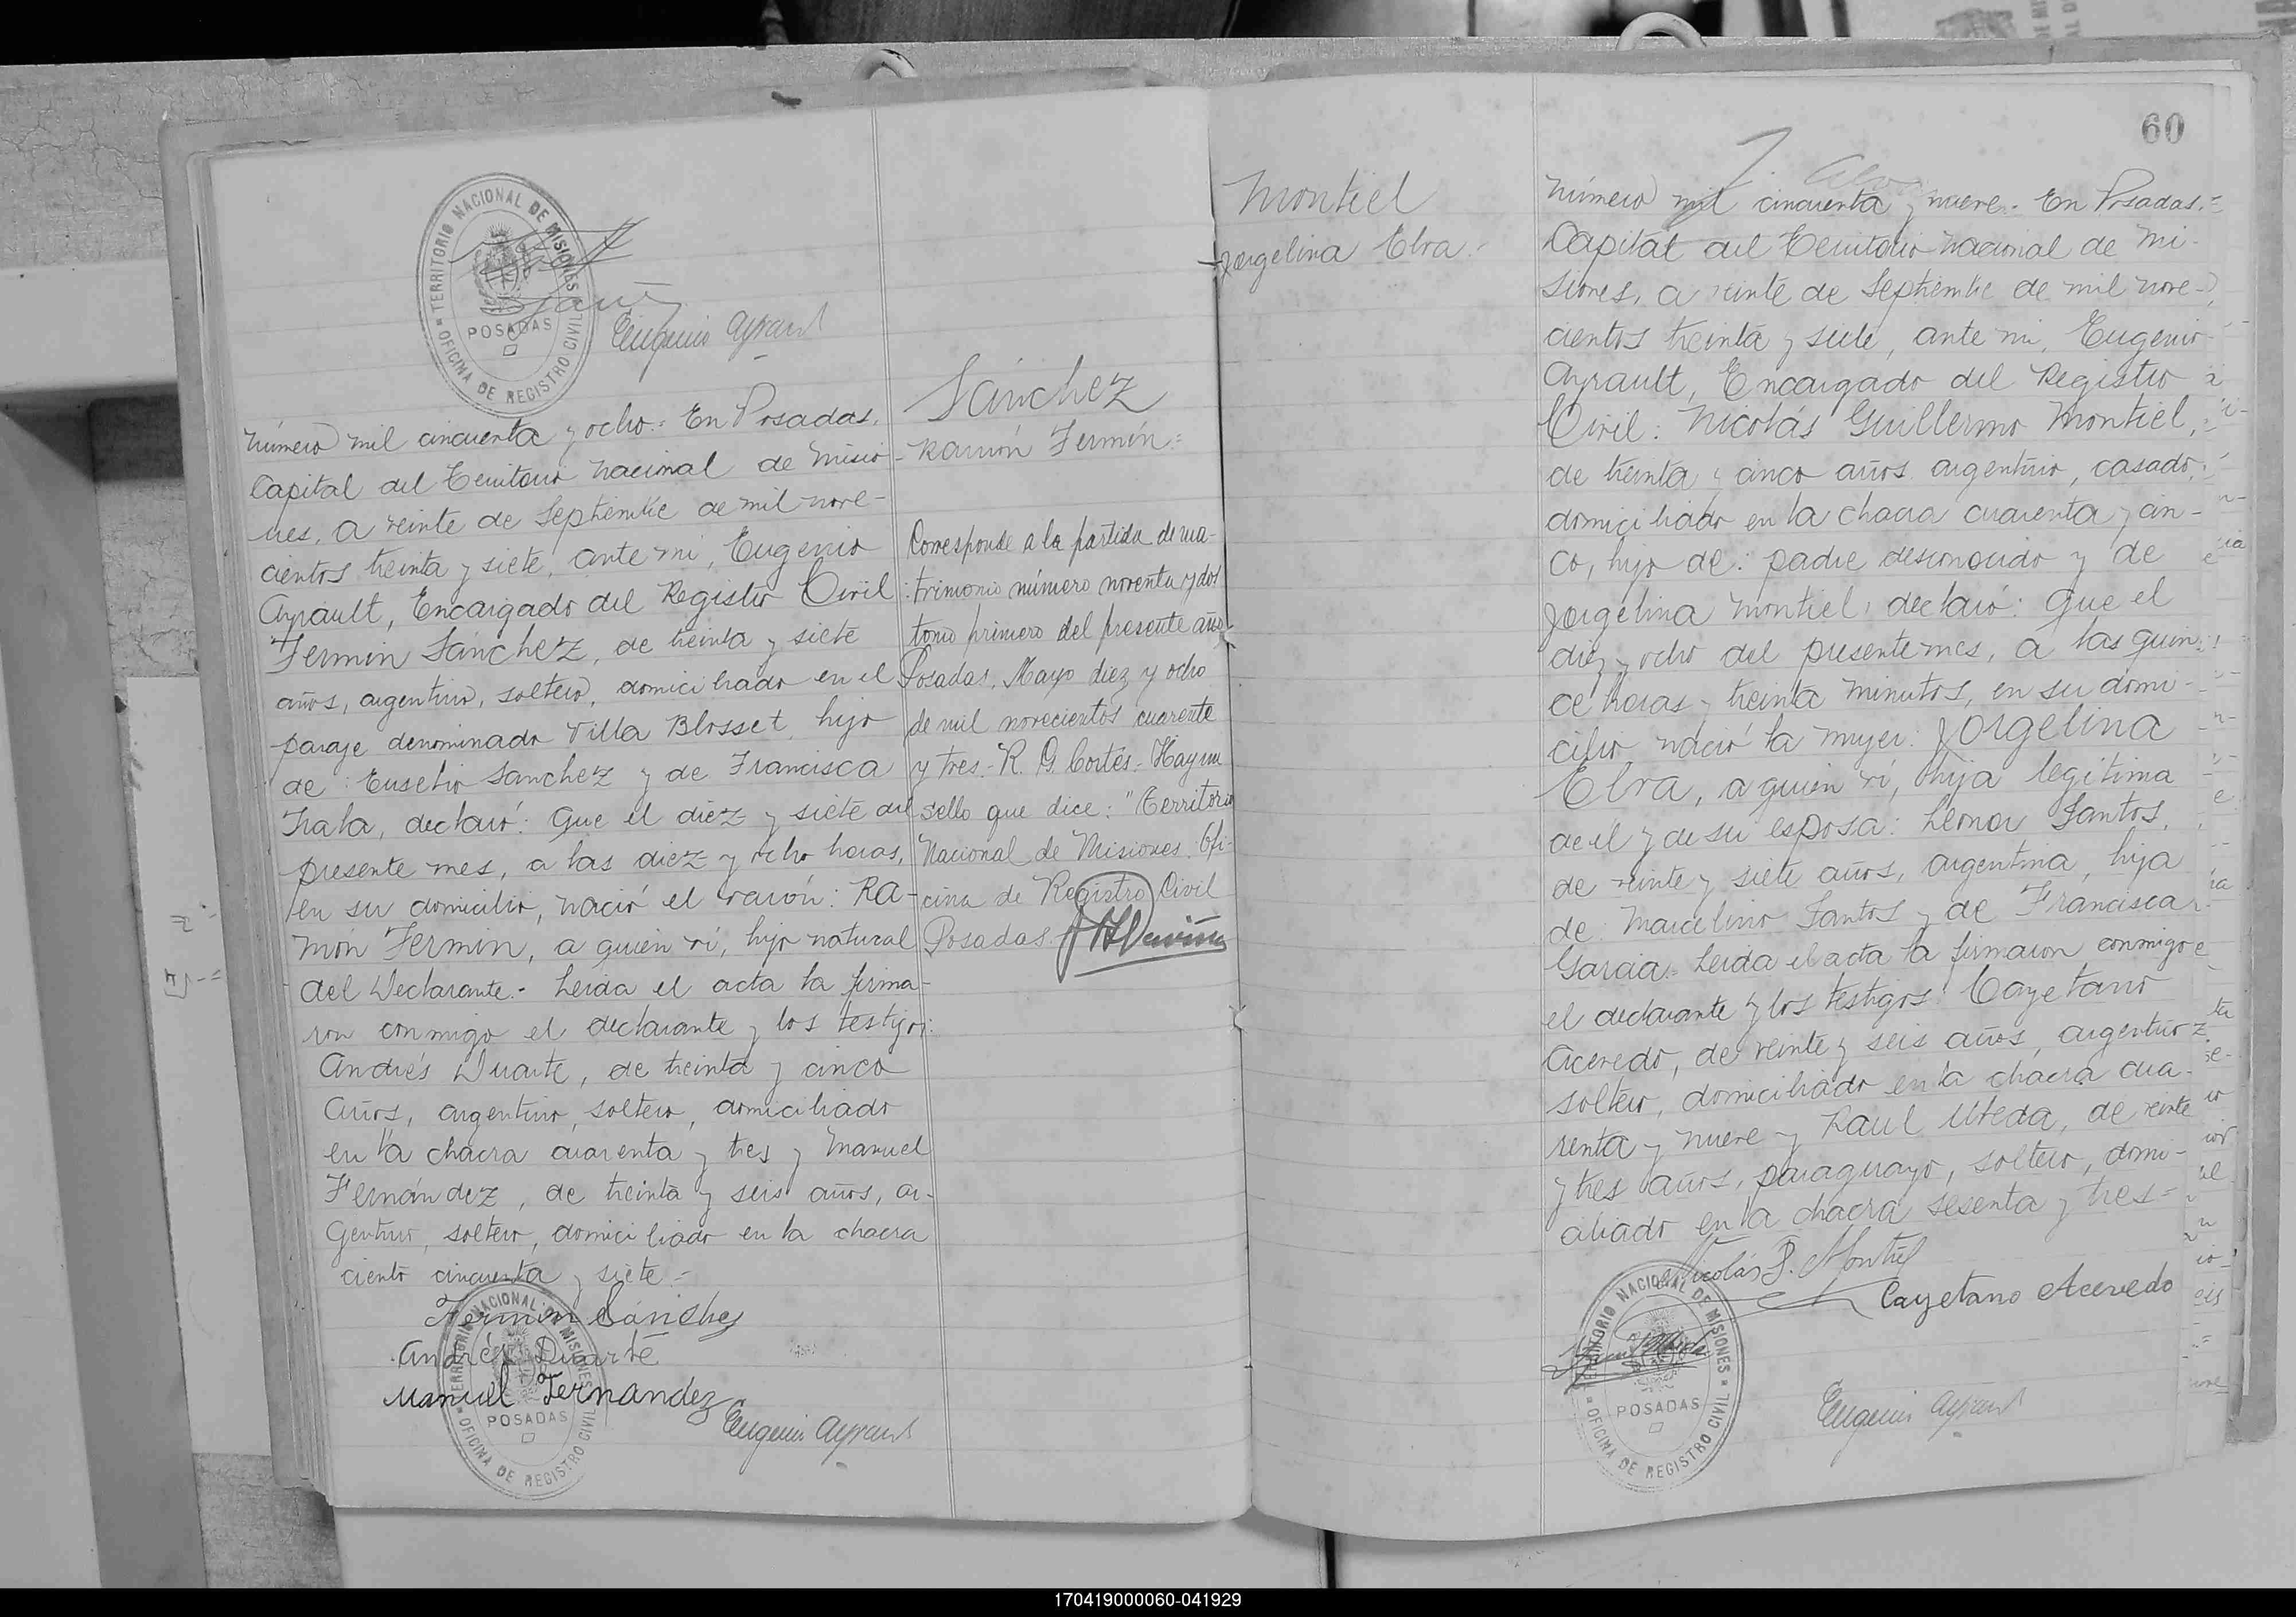 TERRITORIO NACIONAL DE MISIONES
OFICINA DE REGISTRO CIVIL
POSADAS
Eugenio Ayrault
Número mil cincuenta y ocho.= En Posadas,
Capital del Territorio Nacional de Misio-
nes, a veinte de Septiembre de mil nove-
cientos treinta y siete, ante mí, Eugenio
Ayrault, Encargado del Registro Civil
Fermin Sánchez, de treinta y siete
años, argentino, soltero, domiciliado en el
paraje denominado Villa Blosset, hijo
de: Eusebio Sanchez y de Francisca
declaró: Que el diez y siete del
presente mes, a las diez y ocho horas,
en su domicilio, nació el varón: RA-
món Fermin, a quien ví, hijo natural
del Declarante.- Leida el acta la firma-
ron conmigo el declarante y los testigos:
Andrés Duarte, de treinta y cinco
años, argentino, soltero, domiciliado
en la chacra cuarenta y tres y Manuel
Fernández, de treinta y seis años, ar-
gentino, soltero, domiciliado en la chacra
ciento cincuenta y siete.=
Fermin Sánchez
Andrés Duarte
Manuel Fernandez
Eugenio Ayrault
TERRITORIO NACIONAL DE MISIONES
OFICINA DE REGISTRO CIVIL
POSADAS
Sánchez
Ramón Fermín=
Corresponde a la partida de ma-
trimonio número noventa y dos
tomo primero del presente año.
Posadas, Mayo diez y ocho
de mil novecientos cuarenta
y tres.- R. G. Cortés.- Hay un
sello que dice: "Territorio
Nacional de Misiones. Ofi-
cina de Registro Civil
Posadas.
Montiel
Jorgelina Elva.
60
Número mil cincuenta y nueve.- En Posadas,=
Capital del Territorio Nacional de Mi-
siones, a veinte de Septiembre de mil nove-
cientos treinta y siete, ante mi, Eugenio
Ayrault, Encargado del Registro
Civil: Nicolás Guillermo Montiel,
de treinta y cinco años argentino, casado,
domiciliado en la chacra cuarenta y cin-
co, hijo de: padre desconocido y de
Jorgelina Montiel, declaró: Que el
diez y ocho del presente mes, a las quin-
ce horas y treinta minutos, en su domi-
cilio nació la mujer: Jorgelina
Elva, a quien ví, hija legítima
de él y de su esposa: Leonor Santos,
de veinte y siete años, argentina, hija
de Marcelino Santos y de Francisca
Garcia.- Leida el acta la firmaron conmigo
el declarante y los testigos: Cayetano
Acevedo, de veinte y seis años, argentino
soltero, domiciliado en la chacra cua-
renta y nueve y Raul Ubeda, de veinte
y tres años, paraguayo, soltero, domi-
ciliado en la chacra sesenta y tres=
Nicolás G. Montiel
Cayetano Acevedo
TERRITORIO NACIONAL DE MISIONES
OFICINA DE REGISTRO CIVIL
POSADAS
Eugenio Ayrault
170419000060-041929